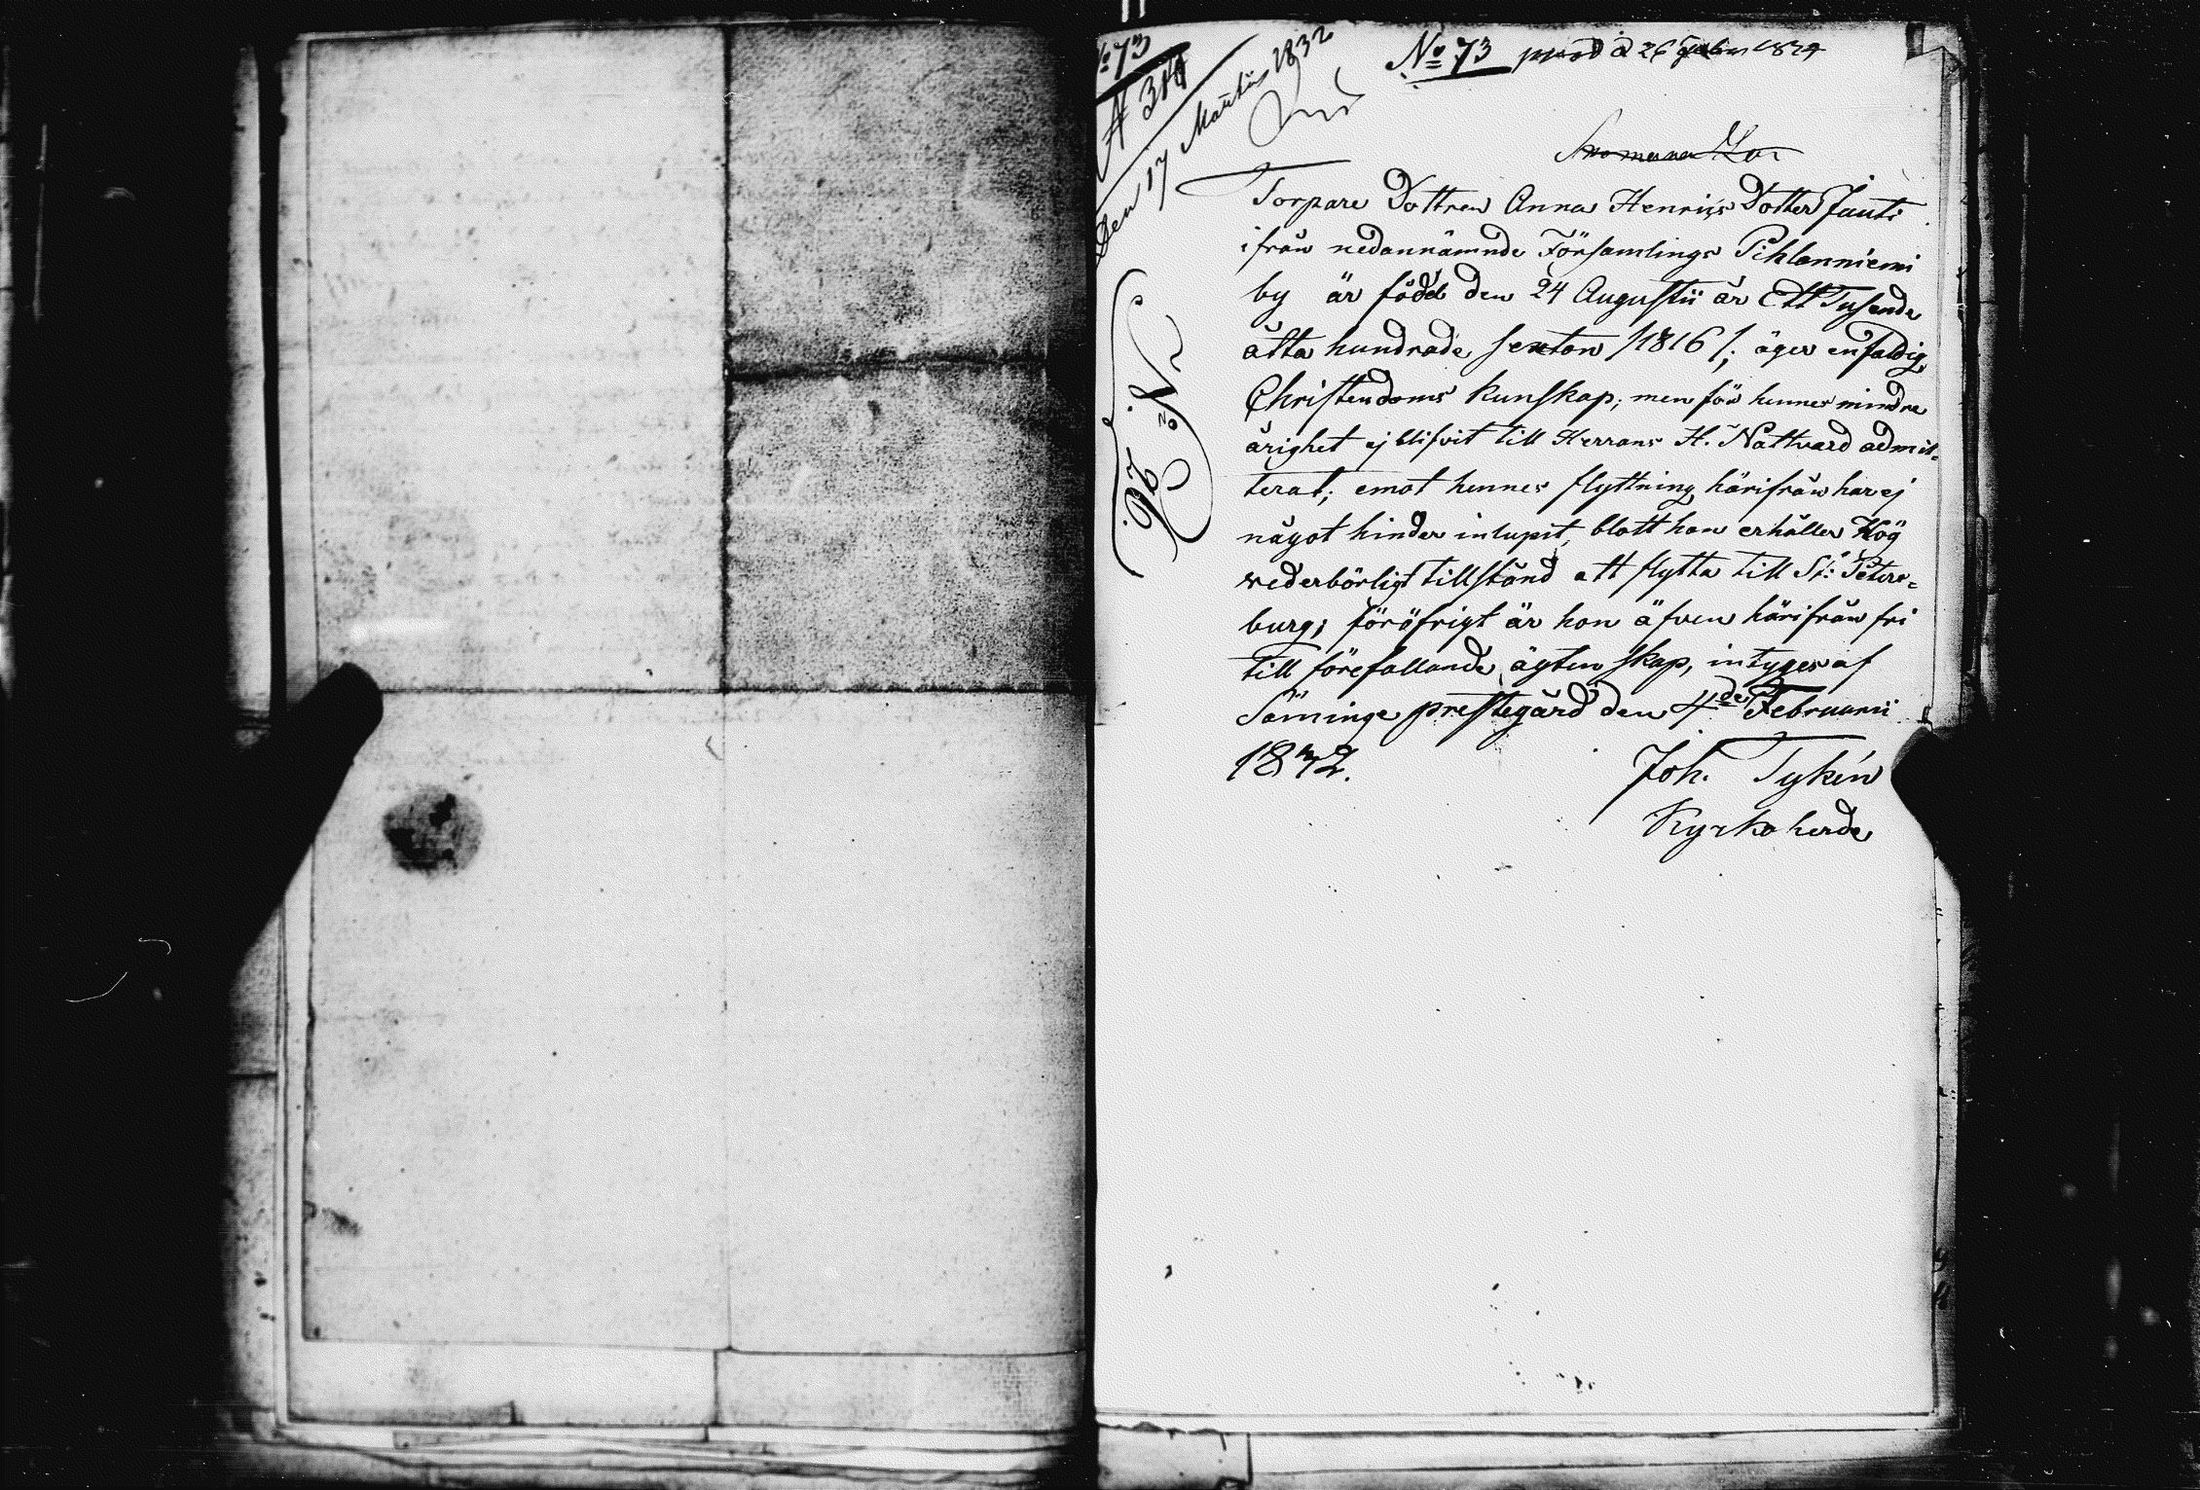 No 73
No 73
A 314
Den 17 Martii 1832
Torpare Dottren Anna Henrics Dotter Jauti
ifrån nedannämnde Församlings Pihlanniemi
by är född den 24 Augustii år Ett Tusende
åtta hundrade sexton /1816/; äger enfaldig
Christendoms kunskap; men för hennes mindre
årighet ej blifvit till Herrans H. Nattvard admit-
terad; emot hennes flyttning härifrån har ej
något hinder inlupit, blott hon erhåller Hög
wederbörligt tillstånd att flytta till St: Peters-
burg; föröfrigt är hon äfven härifrån fri
till förefallande ägtenskap, intyges af
Säminge prestegård den 4de Februarii
1832.
Joh. Tykén
Kyrkoherde